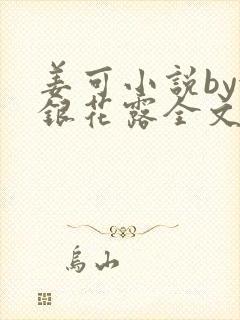 姜可小説by
銀花露全文
烏山